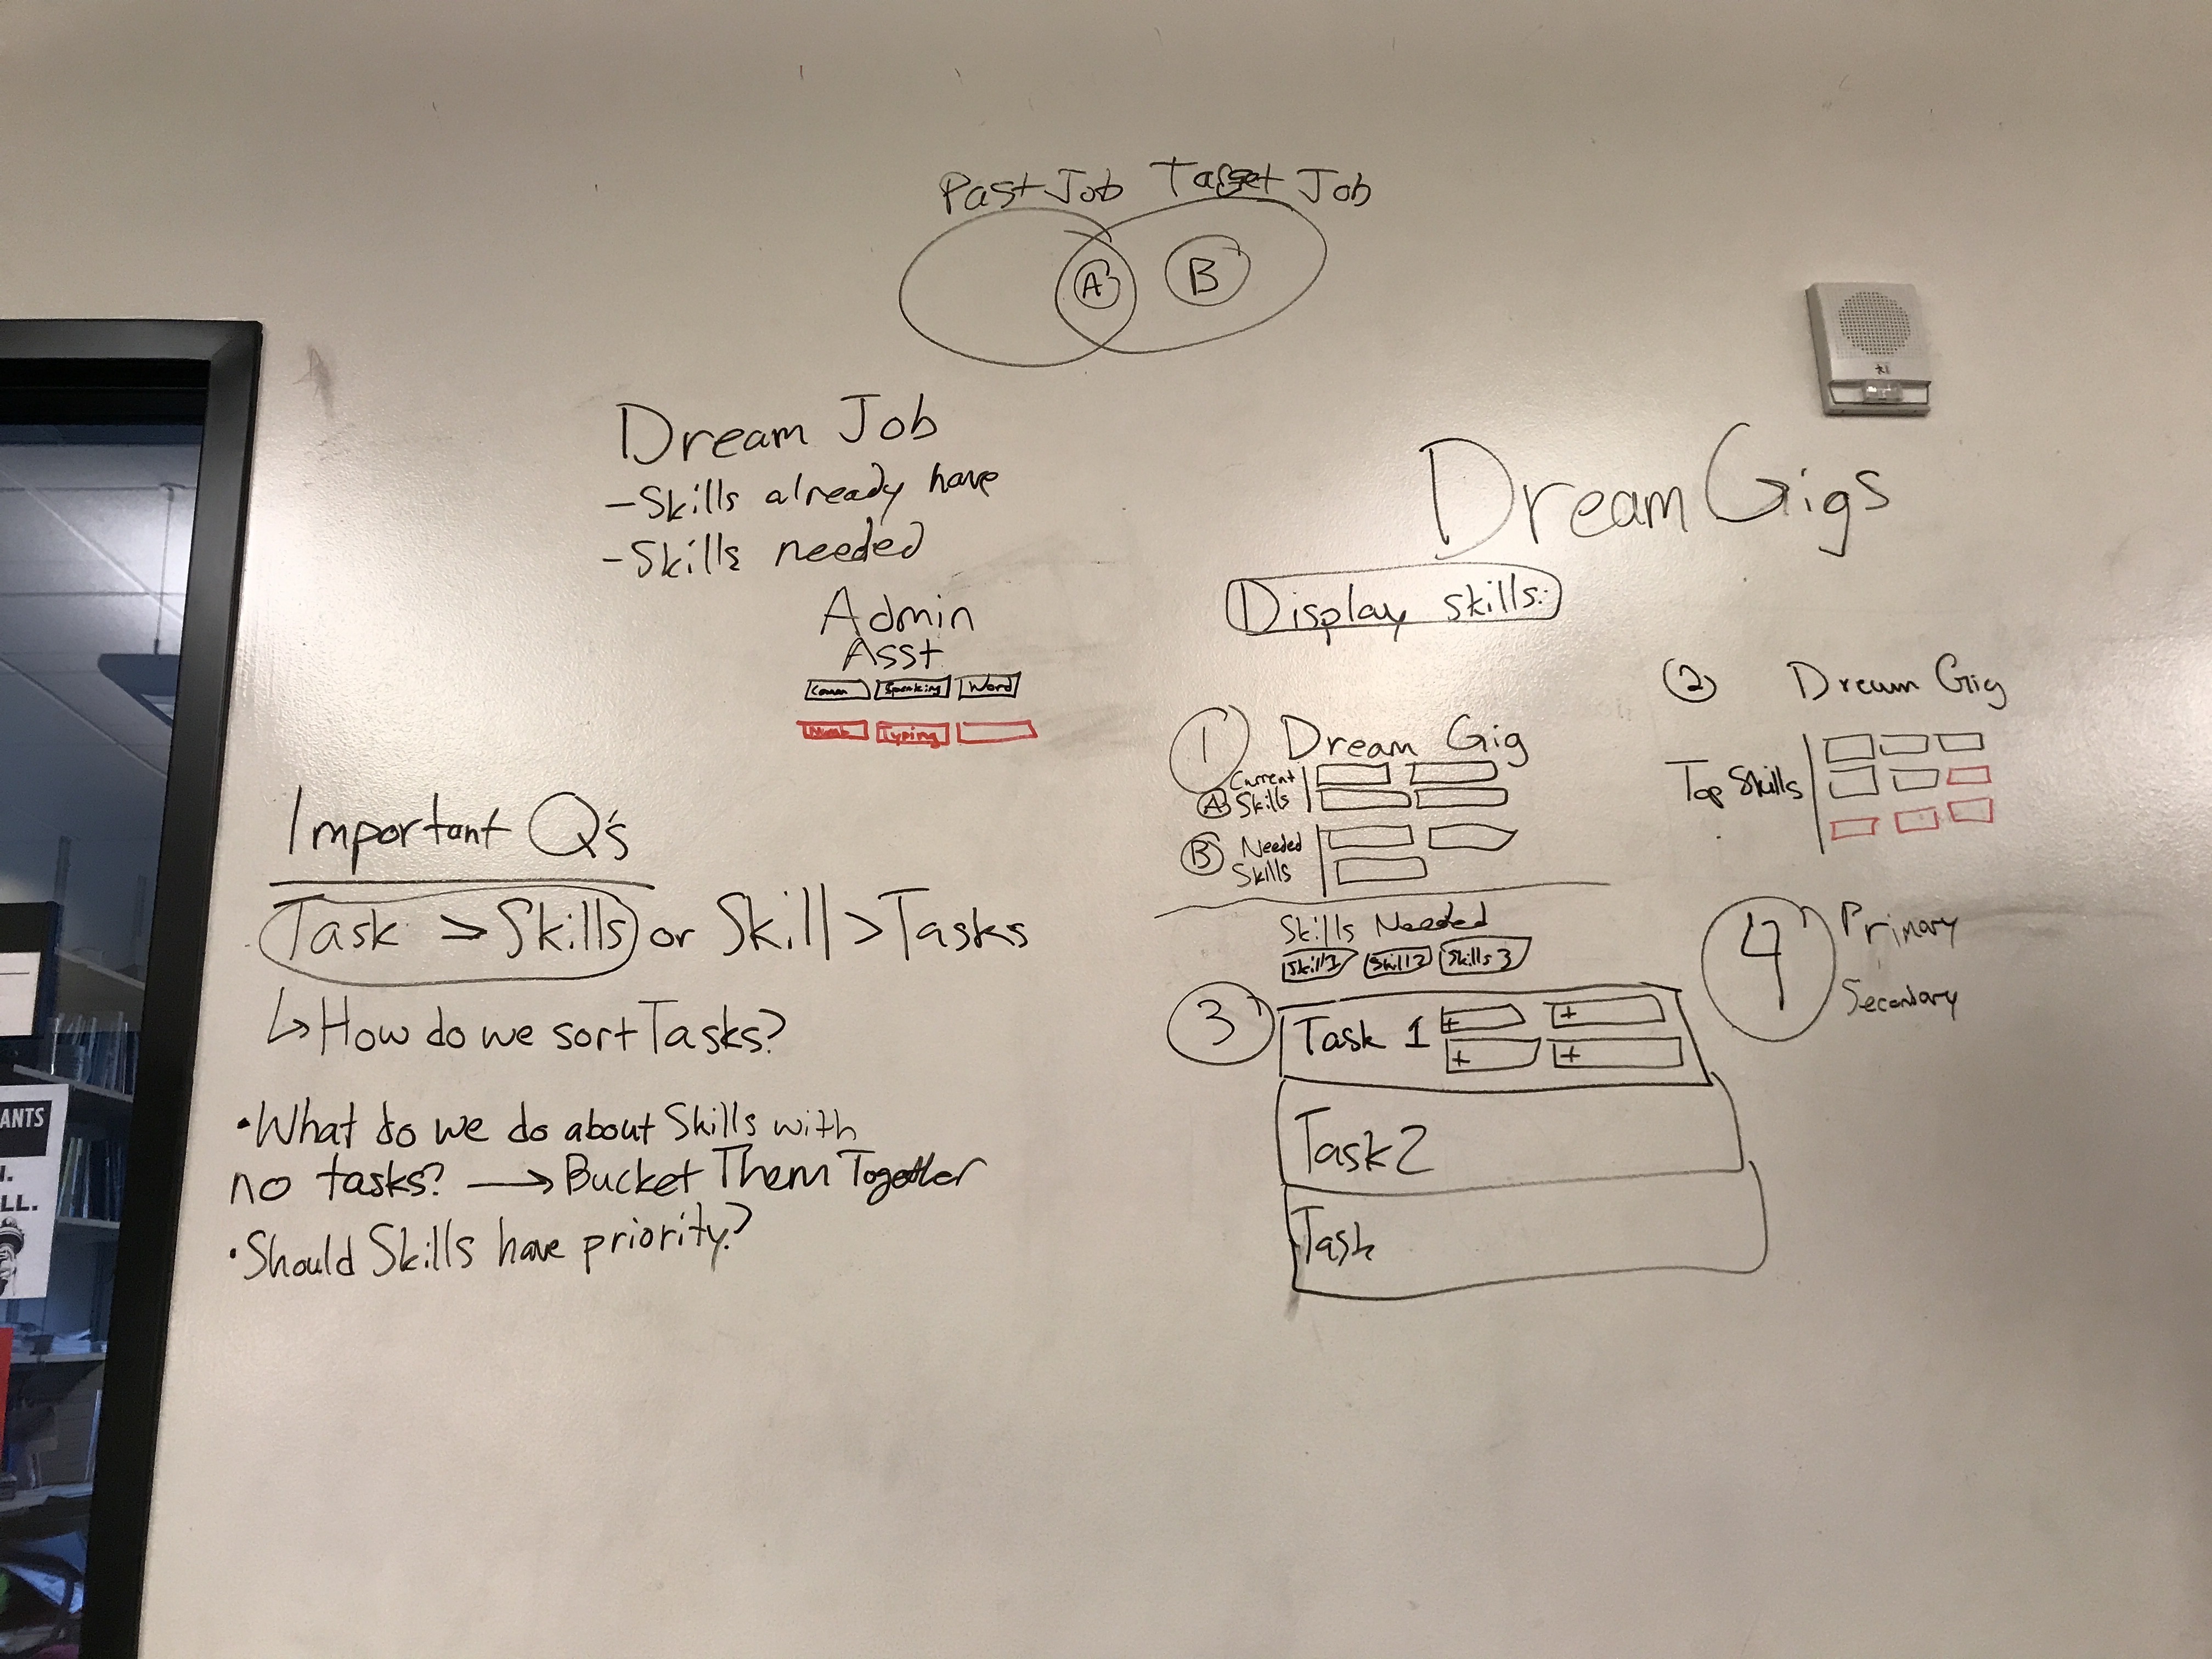 Past Job Target Job
A B
Dream Job
- Skills already have
- Skills needed
Admin
Asst
Comm Speaking Word
Typing
Important Q's
Task > Skills or Skill > Tasks
↳ How do we sort Tasks?
• What do we do about Skills with
no tasks? → Bucket Them Together
• Should Skills have priority?
Dream Gigs
Display skills:
1 Dream Gig
Current
A Skills
B Needed
Skills
2 Dream Gig
Top Skills
Skills Needed
Skill 1 Skill 2 Skills 3
3 Task 1 + +
+ +
Task 2
Task
4 Primary
Secondary
ANTS
LL.